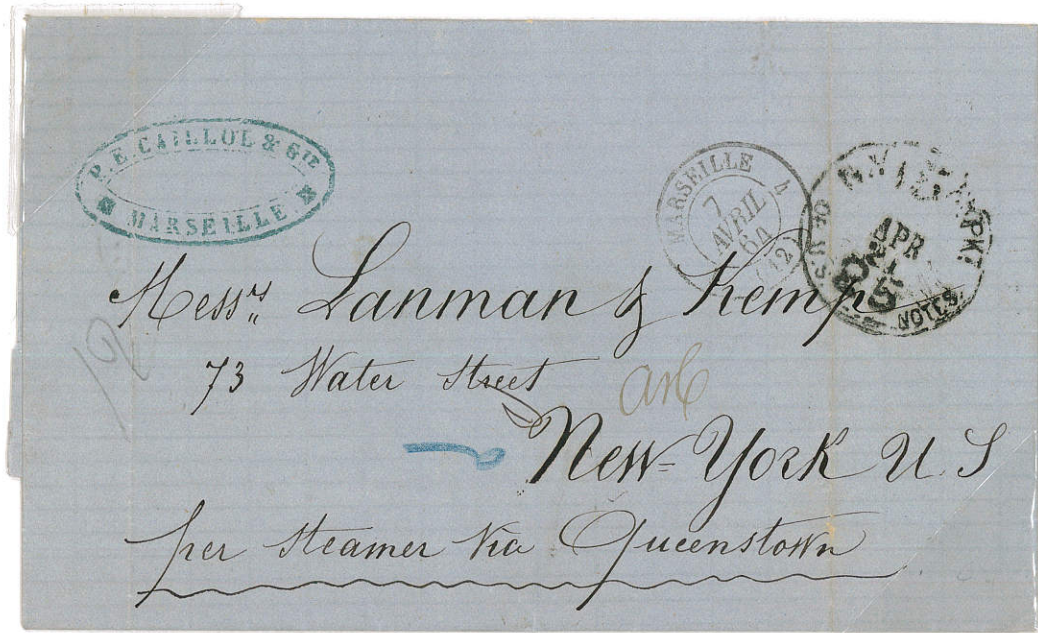 P. E. CAILLOL & CIE
MARSEILLE
MARSEILLE 4
7
AVRIL
64
(12)
N. Y. AM. PKT.
APR
21
NOTES
OR U.S.
Messrs Lanman & Kemp
73 Water Street
New-York U S
per steamer via Queenstown